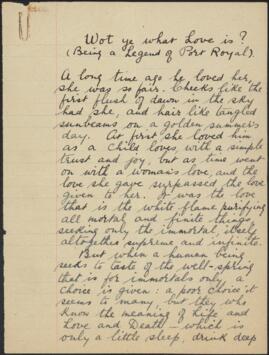 Wot ye what Love is?
(Being a Legend of Port Royal).
A long time ago he loved her,
she was so fair. Cheeks like the
first flush of dawn in the sky
had she, and hair like tangled
sunbeams on a golden summer's
day. At first she loved him
as a child loves, with a simple
trust and joy, but as time went
on with a woman's love, and the
love she gave surpassed the love
given to her. It was the love
that is the white flame purifying
all mortal and finite things
seeking only the immortal, itself
altogether supreme and infinite.
But when a human being
seeks to taste of the well-spring
that is for immortals only a
choice is given: a poor choice it
seems to many, but they who
know the meaning of Life and
Love and Death – which is
only a little sleep, drink deep